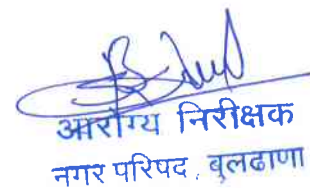 आरोग्य निरीक्षक
नगर परिषद, बुलढाणा